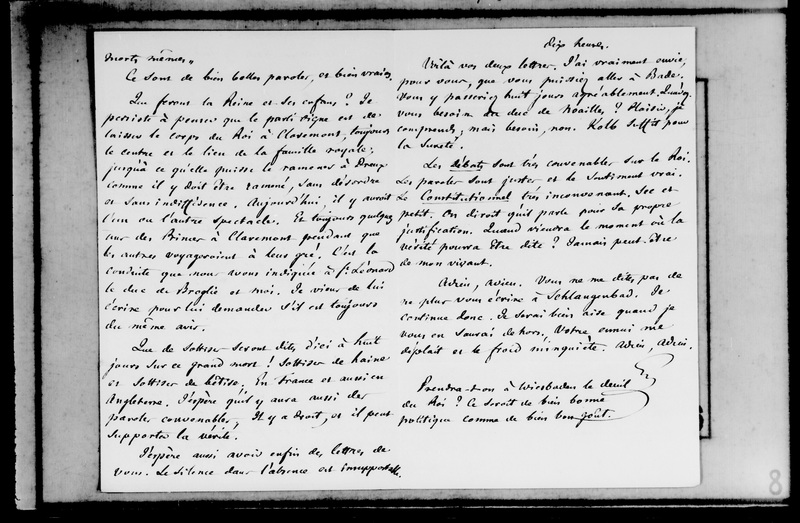 morts mêmes."
Ce sont de bien belles paroles, et bien vraies.
Que feront la Reine et ses enfans ? Je
persiste à penser que le parti digne est de
laisser le corps du Roi à Claremont, toujours
le centre et le lieu de la famille royale,
jusqu'à ce qu'elle puisse le ramener à Dreux
comme il y doit être ramené, sans désordre
et sans indifférence. Aujourd'hui, il y auroit
l'un ou l'autre spectacle. Et toujours quelqu'
un des Princes à Claremont pendant que
les autres voyageroient à leur gré. C'est la
conduite que nous avons indiquée à St Léonard
le duc de Broglie et moi. Je viens de lui
écrire pour lui demander s'il est toujours
du même avis.
Que de sottises seront dites d'ici à huit
jours sur ce grand mort ! Sottises de haine
et sottises de bêtise, en France et aussi en
Angleterre. J'espère qu'il y aura aussi des
paroles convenables. Il y a droit, et il peut
supporter la vérité.
J'espère aussi avoir enfin des lettres de
vous. Le silence dans l'absence est insupportable.
dix heures.
Voilà vos deux lettres. J'ai vraiment envie,
pour vous, que vous puissiez aller à Bade.
Vous y passeriez huit jours agréablement. Qu'avez
vous besoin du duc de Noailles ? Plaisir, je
comprends ; mais besoin, non. Kolb suffit pour
la sureté.
Les débats sont très convenables sur le Roi.
Les paroles sont justes et le sentiment vrai.
Le Constitutionnel très inconvenant. Sec et
petit. On diroit qu'il parle pour sa propre
justification. Quand viendra le moment où la
vérité pourra être dite ? Jamais peut-être
de mon vivant.
Adieu, adieu. Vous ne me dites pas de
ne plus vous écrire à Schlangenbad. Je
continue donc. Je serai bien aise quand je
vous en saurai dehors. Votre ennui me
déplaît et le froid m'inquiète. Adieu, adieu.
Prendra-t-on à Wiesbaden le deuil
du Roi ? Ce seroit de bien bonne
politique comme de bien bon goût.
8